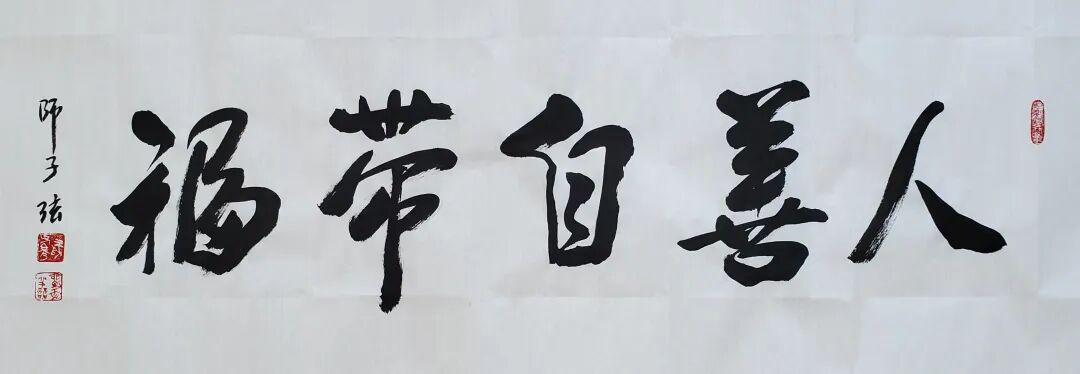 人善自带福
师子弦